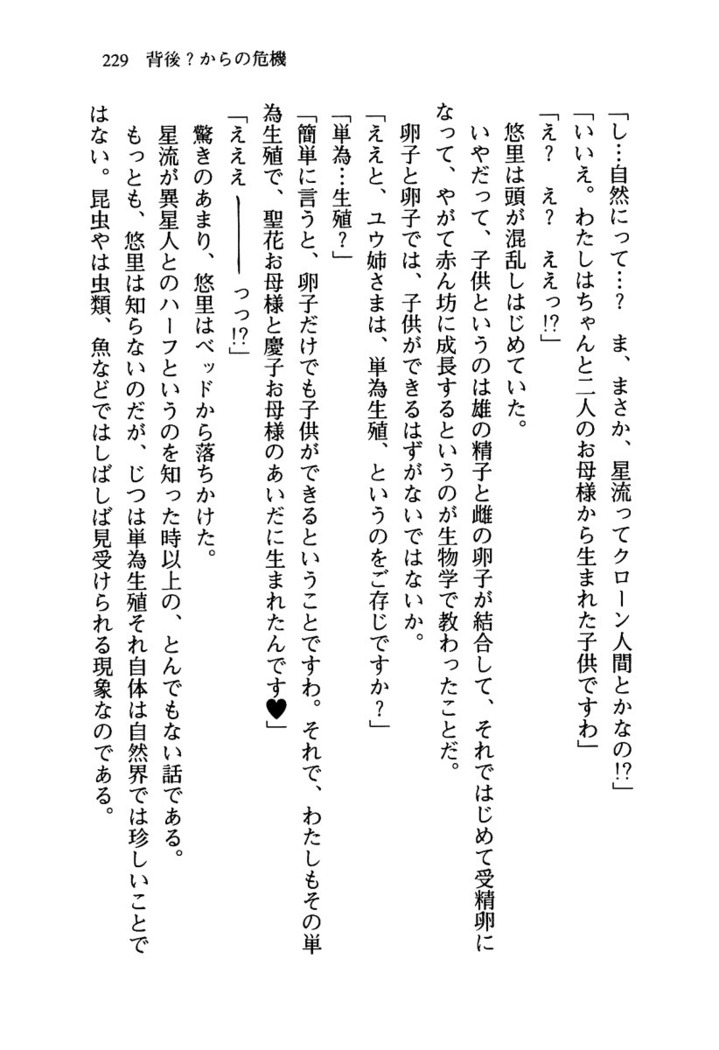 229　背後？からの危機
「し…自然にって…？　ま、まさか、星流ってクローン人間とかなの!?」
「いいえ。わたしはちゃんと二人のお母様から生まれた子供ですわ」
「え？　え？　ええっ!?」
　悠里は頭が混乱しはじめていた。
　いやだって、子供というのは雄の精子と雌の卵子が結合して、それではじめて受精卵に
なって、やがて赤ん坊に成長するというのが生物学で教わったことだ。
　卵子と卵子では、子供ができるはずがないではないか。
「ええと、ユウ姉さまは、単為生殖、というのをご存じですか？」
「単為…生殖？」
「簡単に言うと、卵子だけでも子供ができるということですわ。それで、わたしもその単
為生殖で、聖花お母様と慶子お母様のあいだに生まれたんです♥」
「えええ――――っっ!?」
　驚きのあまり、悠里はベッドから落ちかけた。
　星流が異星人とのハーフというのを知った時以上の、とんでもない話である。
　もっとも、悠里は知らないのだが、じつは単為生殖それ自体は自然界では珍しいことで
はない。昆虫やは虫類、魚などではしばしば見受けられる現象なのである。